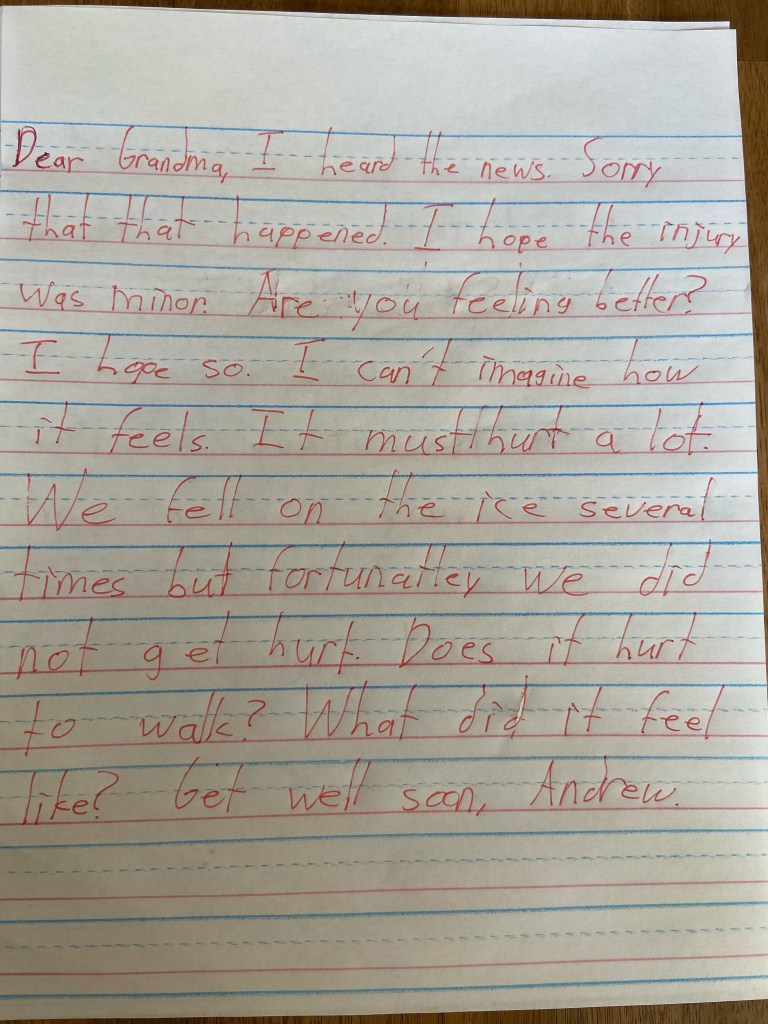 Dear Grandma, I heard the news. Sorry
that that happened. I hope the injury
was minor. Are you feeling better?
I hope so. I can't imagine how
it feels. It must hurt a lot.
We fell on the ice several
times but fortunatley we did
not get hurt. Does it hurt
to walk? What did it feel
like? Get well soon, Andrew.